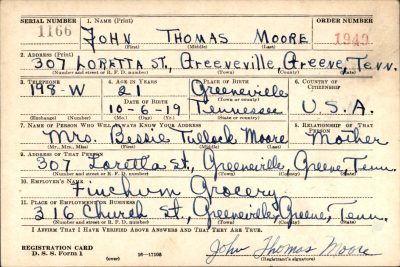 SERIAL NUMBER 1. NAME (Print) ORDER NUMBER
1166 JOHN THOMAS MOORE 1949
(First) (Middle) (Last)
2. ADDRESS (Print)
307 LORETTA St., Greeneville, Greene, Tenn.
(Number and street or R. F. D. number) (Town) (County) (State)
3. TELEPHONE 4. AGE IN YEARS 5. PLACE OF BIRTH 6. COUNTRY OF CITIZENSHIP
198-W 21 Greeneville
DATE OF BIRTH (Town or county)
10-6-19 Tennessee U.S.A.
(Exchange) (Number) (Mo.) (Day) (Yr.) (State or country)
7. NAME OF PERSON WHO WILL ALWAYS KNOW YOUR ADDRESS 8. RELATIONSHIP OF THAT PERSON
Mrs. Bessie Tullock Moore Mother
(Mr., Mrs., Miss) (First) (Middle) (Last)
9. ADDRESS OF THAT PERSON
307 Loretta St., Greeneville, Greene, Tenn.
(Number and street or R. F. D. number) (Town) (County) (State)
10. EMPLOYER'S NAME
Finchum Grocery
11. PLACE OF EMPLOYMENT OR BUSINESS
316 Church St., Greeneville, Greene, Tenn.
(Number and street or R. F. D. number) (Town) (County) (State)
I AFFIRM THAT I HAVE VERIFIED ABOVE ANSWERS AND THAT THEY ARE TRUE.
REGISTRATION CARD
D. S. S. Form 1 (over) 16-17105 John Thomas Moore
(Registrant's signature)